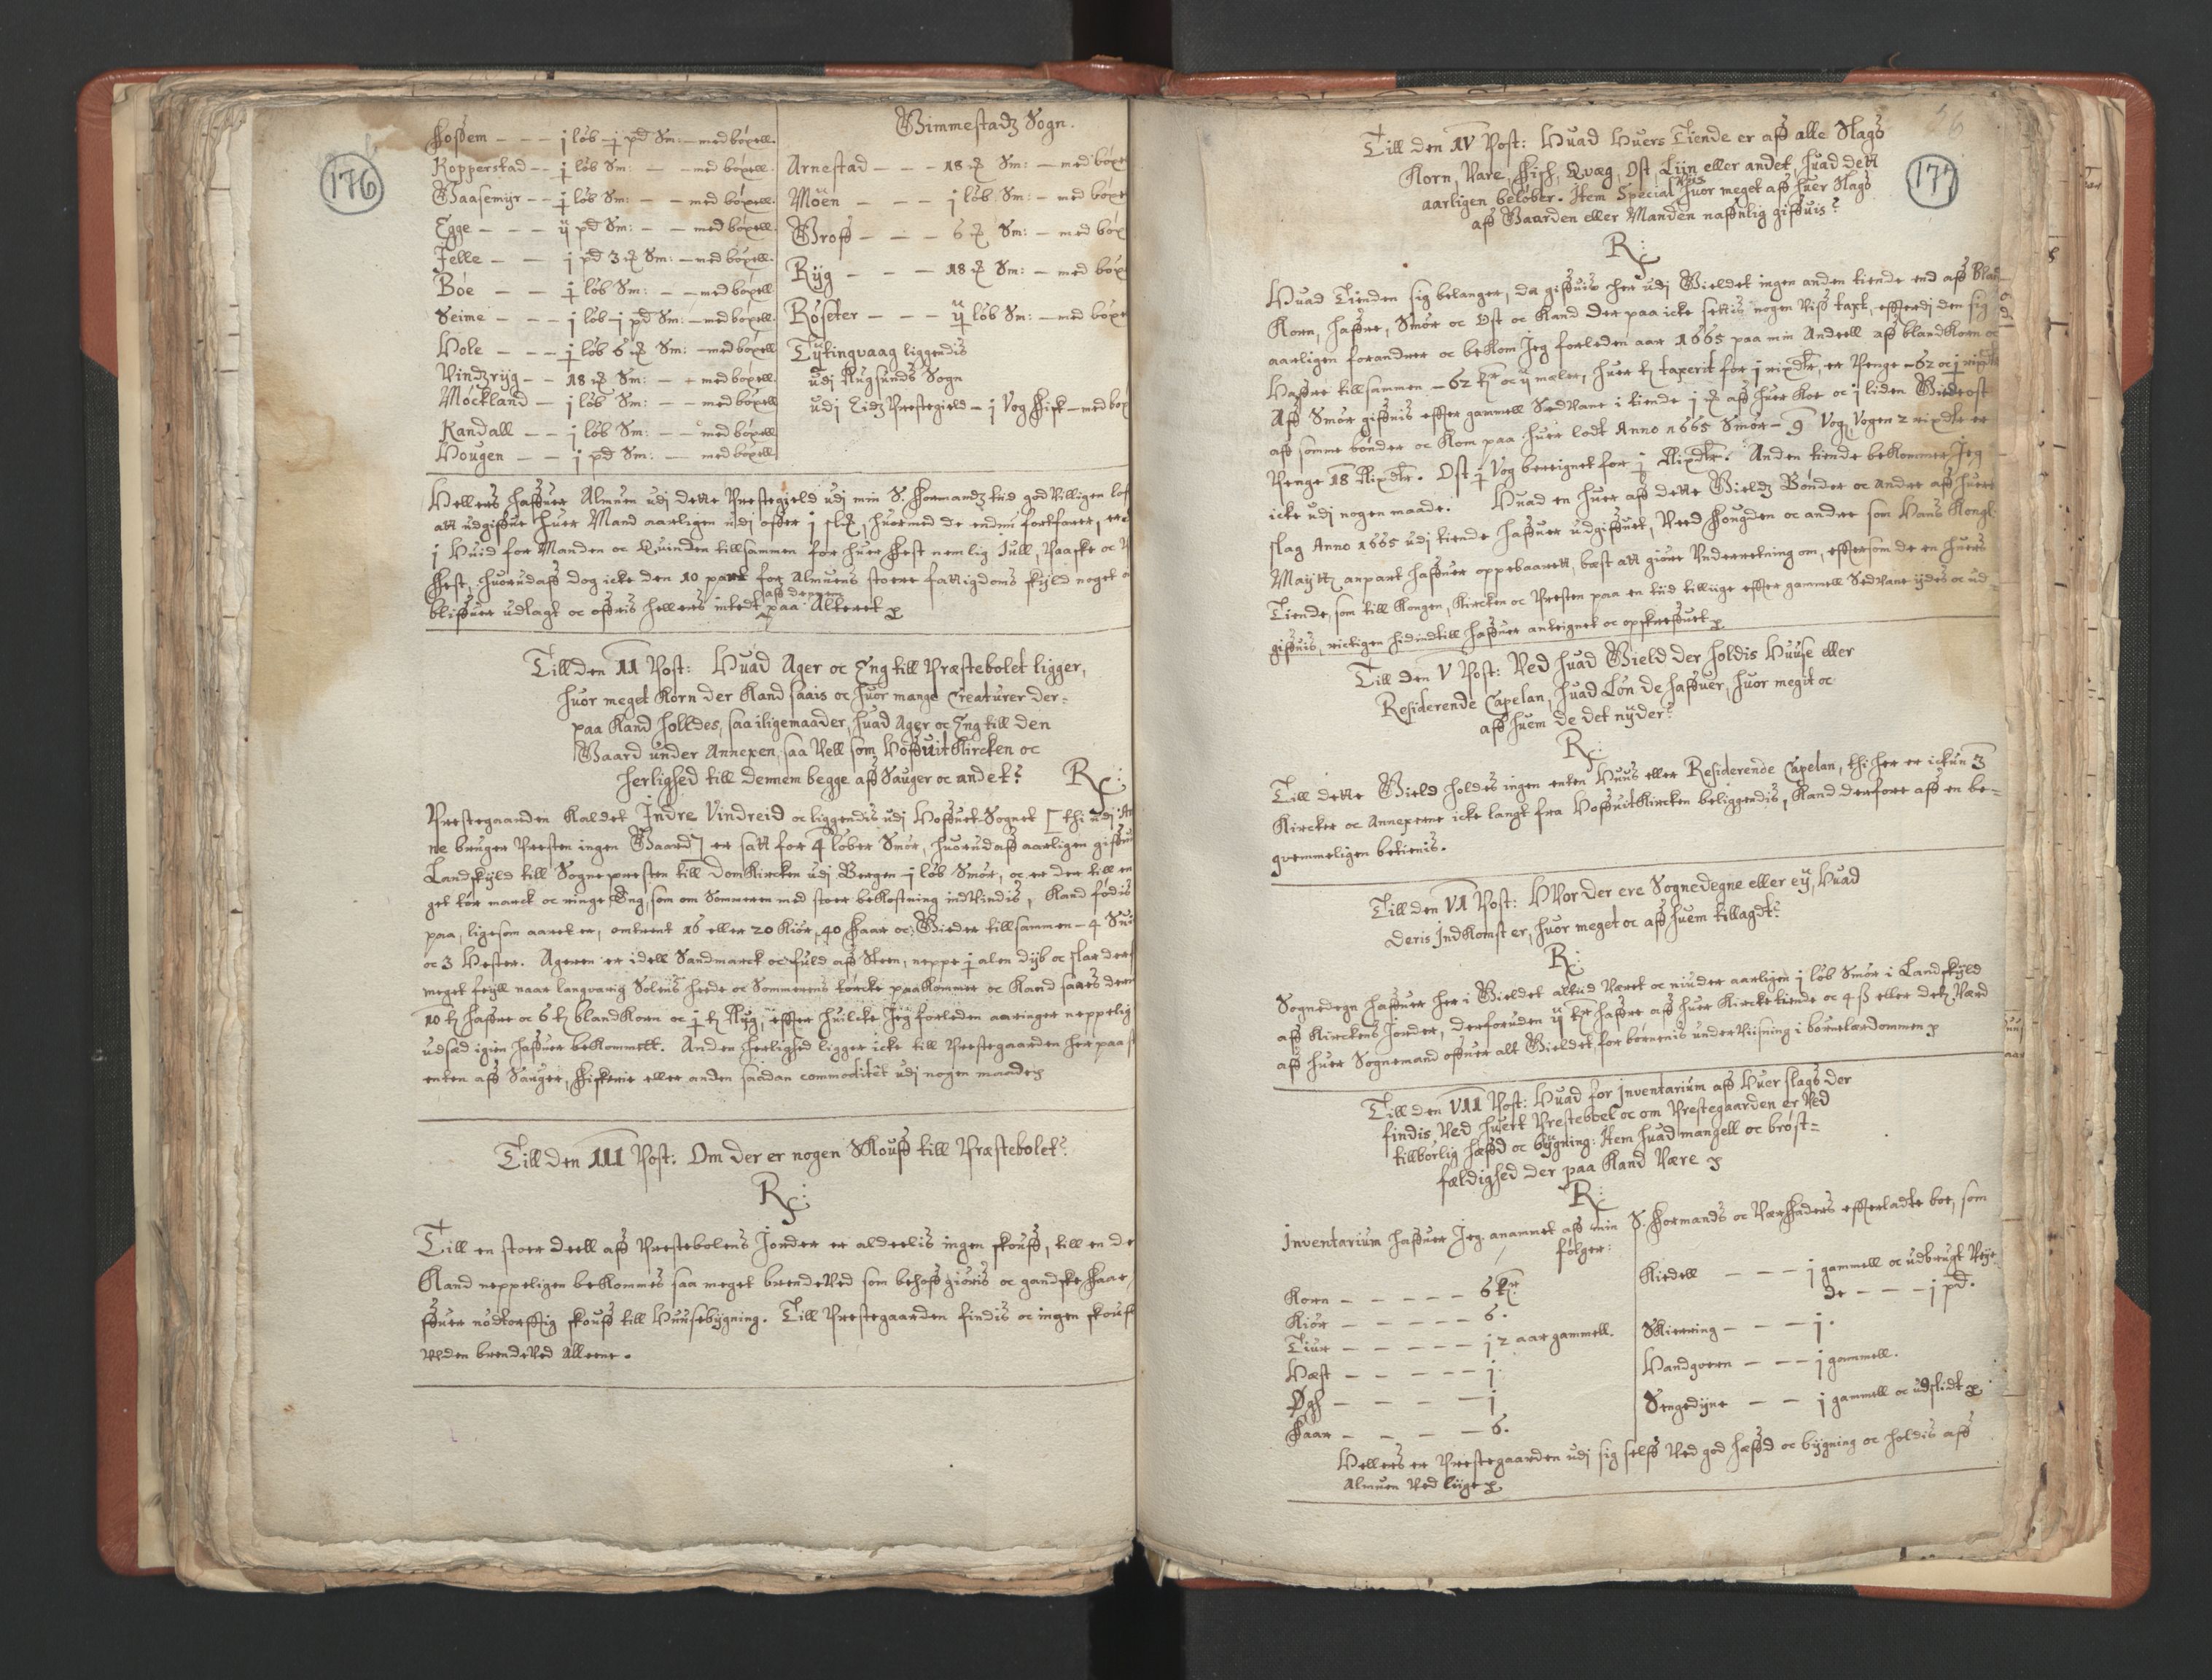 176
Fossem – – – j löb – j pd Sm: – med böxell.
Kopperstad – – ½ löb Sm: – – med böxell.
Gaasemyr – – ½ löb Sm: – – med böxell.
Egge – – – ij pd Sm: – – med böxell.
Felle – – j pd 3 Sm: – med böxell.
Böe – – ½ löb Sm: – – med böxell
Seime – – – j löb – j pd Sm: – med böxell.
Hole – – – ½ löb 6 Sm: – med böxell
Vindzryg – – 18 Sm: – med böxell.
Möckland – j löb Sm: – – med böxell
Randall – – j löb Sm: – – med böxell
Hougen – – j pd Sm: – – med böxell
Gimmestadz Sogn.
Arnestad – – – 18 Sm: – med böxe
Möen – – – j löb Sm: – med böxe
Groff – – – 6 Sm: – med böx
Ryg – – – 18 Sm: – med böx
Röseter – – – ½ löb Sm: – med böxe
Tytingvaag liggendis
udj Rugsunds Sogn
udj Eidz Prestegield – j Vog Fisk – med böx
Hellers haffuer Almuen udj dette Prestegield udj min S. Formandz tid godvilligen lof
att udgiffue huer Mand aarligen udj offer j, huormed de endnu fortfarer, er
j Huid for Manden oc Quinden tillsammen for huer Fest nemlig Jull, Paaske oc
Fest, huorudaff dog icke den 10 part for Almuens stoere fattigdoms skyld noget
aff dennem
bliffuer udlagt oc offris hellers intedt paa Alteret
Till den II Post: Huad Ager oc Eng till Præstebolet ligger,
huor meget Korn der Kand saais oc huor mange Creaturer der=
paa Kand holldes, saa iligemaader, huad Ager oc Eng till den
Gaard under Annexen, saa vell som HoffuitKircken oc
herlighed till dennem begge aff Sauger oc andet? Rx:
Prestegaarden Kaldet Indre Vindreid oc liggendis udj Hoffuet Sognet [thi udj An
ne bruger Presten ingen Gaard] er satt for 4 löber Smör, huorudaff aarligen giffui
Landskyld till Sognepresten till DomKircken udj Bergen – j löb Smör, oc er der till en
get tör marck oc ringe Eng, som om Sommeren med stoer beKostning indvindis, Kand födis
paa, ligesom aaret er, omtrent 16 eller 20 Kiör, 40 Faar oc Gieder tillsammen – 4 Sui
oc 3 Hester. Ageren er idell Sandmarck oc fuld aff Steen, neppe ½ alen dyb oc slar der
meget feyll naar langvarig Solens heede oc Sommerens törcke paakommer oc Kand saaes derv
10 t hafre oc 6 t blandKorn oc ½ t Ryg, effter huilcke Jeg forleden aaringer neppelig
udsæd igien haffuer beKommett. Anden herlighed ligger icke till Prestegaarden her paa st
enten aff Sauger, Fiskerie eller anden saadan commoditet udj nogen maade
Till den III Post: Om der er nogen Skouff till Præstebolet?
Rx:
Till en stoer deell aff Prestebolens Jorder er alderlis ingen skouff, till en de
Kand neppeligen beKommes saa meget brendeved som behoff giöris oc gandske Faar,
ffuer nödtorfftig skouff till Huusebygning. Till Prestegaarden findis oc ingen skouff
uden brendeved Alleene.
177
Till den IV Post: Huad Huers Tiende er aff alle Slags
Korn, Vare, Fisk, Qvæg, Ost, Lijn eller andet, huad dett
aarligen belöber. Item Special huor meget aff huer Slags
aff Gaarden eller Manden naffnlig giffuis?
Rx:
Huad Tienden sig belanger, da giffuis her udj Gieldet ingen anden tiende end aff Bland
Korn, haffre, Smör oc Ost oc Kand der paa icke settis nogen viss taxt, efftterdi den sig
aarligen forandrer oc beKom Jeg forleden aar 1665 paa min Andeell aff blandKorn oc
Haffre tillsammen – 62 t oc ij mæler, huer t taxerit for j rixdlr, er Penge – 62 oc ½ rixdlr
Aff Smör giffuis effter gammell Sædvane i tiende j aff huer Koe oc j liden Giedeost
aff somme bönder oc Kom paa huer lodt Anno 1665 Smör – 9 Vog, Vogen 2 rixdlr er
Penge 18 Rixdlr. Ost ½ Vog beregnet for ½ Rixdlr. Anden tiende beKommer Jeg
icke udj nogen maade. Huad en huer aff dette Gieldz Bönder oc andre aff huert
slag Anno 1665 udj tiende haffuer udgiffuet, Veed Fougden oc andre som Hans Kongl:
Maytz anpart haffuer oppebaarett, best att giöre Underretning om, efftersom de en huers
Tiende, som till Kongen, Kircken oc Presten paa en tid tilliige effter gammell Sædvane ydes oc ud=
giffuis, rictigen hidindtill haffuer anteignet oc opskreffuet
Till den V Post: Ved huad Gield der holdis Huuse eller
Residerende Capelan, huad Lön de haffuer, huor megit oc
aff huem de det nyder?
Rx:
Till dette Gield holdes ingen enten Huus eller Residerende Capelan, thi her er ickun 3
Kircker oc Annexerne icke langt fra HoffuitKircken beliggendis, Kand derfore aff en be=
qvemmeligen betienis.
Till den VI Post: Hvor der ere Sognedegne eller ey, Huad
deris IndKomst er, huor meget oc aff huem tillagdt?
Rx:
Sognedegn haffuer her i Gieldet altid Været oc niuder aarligen j löb Smör i Landskyld
aff Kirckens Jorder, derforuden ij t haffre aff huer Kircketiende oc 4 ß eller detz Værd
aff huer Sognemand offuer alt Gieldet, for börnenis undervisning i börnelærdommen
Till den VII Post: Huad for Inventarium aff Huer slags der
findis Ved huert Presteboel oc om Prestegaarden er Ved
tillbörlig hæffd oc bygning: Item huad mangell oc bröst=
fældighed der paa Kand Være
Rx:
Inventarium haffuer Jeg anammet aff min S. Formands oc Værfaders effterladte boe, som
fölger:
Korn – – – – – 6 t.
Kiör – – – – – 6.
Tiur – – – – – j 2 aar gammell.
Hæst – – – – – j.
Øgh – – – – j
Faar – – – – 6.
Kiedell – – – j gammell oc udbrugt Veye
de – – – j pd.
Skierring – – – j.
Handqvern – – – j gammell.
Sengedyne – – j gammell oc udslidt
Hellers er Prestegaarden udj sig selff Ved god hæffd oc bygning oc holdis aff
Almuen Ved liige